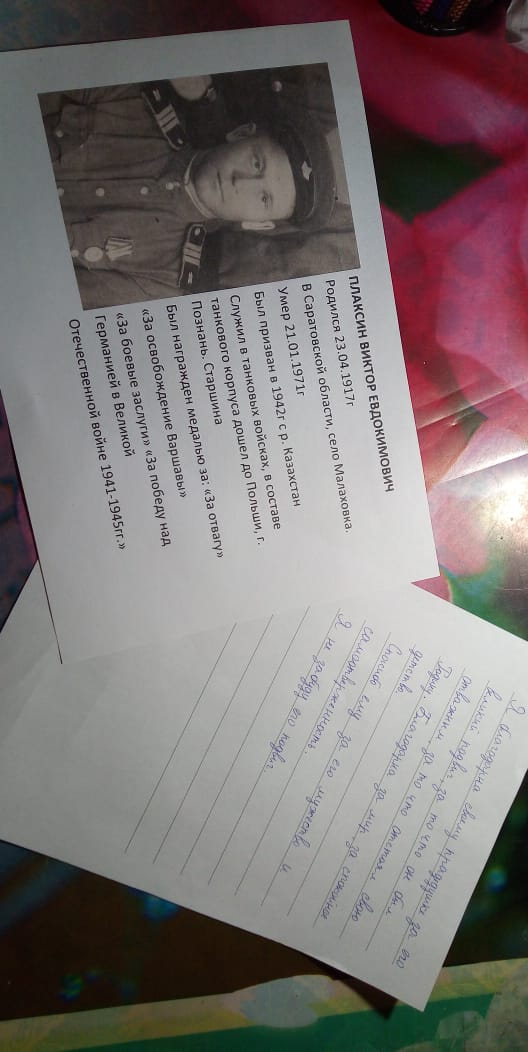 ПЛАКСИН ВИКТОР ЕВДОКИМОВИЧ
Родился 23.04.1917г
В Саратовской области, село Малаховка.
Умер 21.01.1971г
Был призван в 1942г с р. Казахстан
Служил в танковых войсках, в составе
танкового корпуса дошел до Польши, г.
Познань. Старшина
Был награжден медалью за: «За отвагу»
«За освобождение Варшавы»
«За боевые заслуги» «За победу над
Германией в Великой
Отечественной войне 1941-1945гг.»
Я благодарна своему прадедушке за его
великий подвиг, за то что он был
отважным, за то что отстоял свою
Родину. Благодарна за мир, за спокойное
детство
Спасибо ему за его мужество и
самоотверженность.
Я не забуду его подвиг.